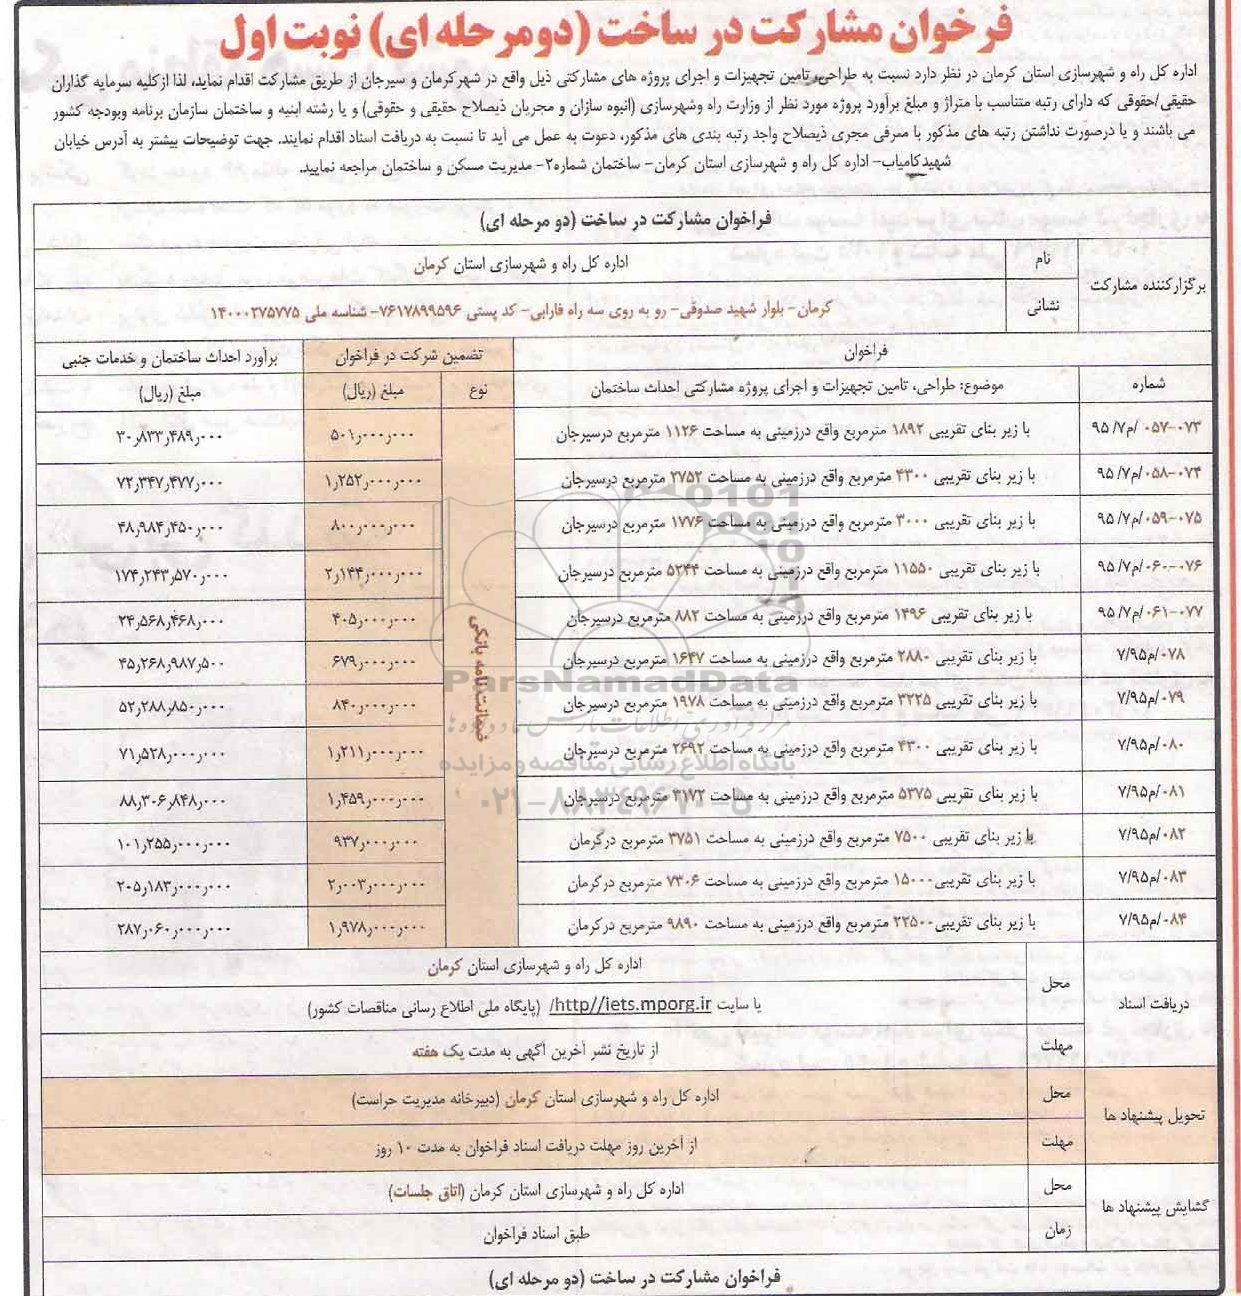 فرخوان مشارکت در ساخت (دومرحله ای) نوبت اول
اداره کل راه و شهرسازی استان کرمان در نظر دارد نسبت به طراحی، تامین تجهیزات و اجرای پروژه های مشارکتی ذیل واقع در شهرکرمان و سیرجان از طریق مشارکت اقدام نماید، لذا ازکلیه سرمایه گذاران
حقیقی/حقوقی که دارای رتبه متناسب با متراژ و مبلغ برآورد پروژه مورد نظر از وزارت راه وشهرسازی (انبوه سازان و مجریان ذیصلاح حقیقی و حقوقی) و یا رشته ابنیه و ساختمان سازمان برنامه وبودجه کشور
می باشند و یا درصورت نداشتن رتبه های مذکور با معرفی مجری ذیصلاح واجد رتبه بندی های مذکور، دعوت به عمل می آید تا نسبت به دریافت اسناد اقدام نمایند. جهت توضیحات بیشتر به آدرس خیابان
شهیدکامیاب- اداره کل راه و شهرسازی استان کرمان- ساختمان شماره۲- مدیریت مسکن و ساختمان مراجعه نمایید.
فراخوان مشارکت در ساخت (دو مرحله ای)
برگزارکننده مشارکت
نام اداره کل راه و شهرسازی استان کرمان
نشانی کرمان- بلوار شهید صدوقی- رو به روی سه راه فارابی- کد پستی ۷۶۱۷۸۹۹۵۹۶- شناسه ملی ۱۴۰۰۰۲۷۵۷۷۵
فراخوان تضمین شرکت در فراخوان برآورد احداث ساختمان و خدمات جنبی
شماره موضوع: طراحی، تامین تجهیزات و اجرای پروژه مشارکتی احداث ساختمان نوع مبلغ (ریال) مبلغ (ریال)
۰۵۷-۰۷۳/م/۷/۹۵ با زیر بنای تقریبی ۱۸۹۲ مترمربع واقع درزمینی به مساحت ۱۱۲۶ مترمربع درسیرجان ۵۰۱٫۰۰۰٫۰۰۰ ۳۰٫۸۳۳٫۴۸۹٫۰۰۰
۰۵۸-۰۷۴/م/۷/۹۵ با زیر بنای تقریبی ۴۳۰۰ مترمربع واقع درزمینی به مساحت ۲۷۵۲ مترمربع درسیرجان ۱٫۲۵۲٫۰۰۰٫۰۰۰ ۷۲٫۳۴۷٫۴۷۷٫۰۰۰
۰۵۹-۰۷۵/م/۷/۹۵ با زیر بنای تقریبی ۳۰۰۰ مترمربع واقع درزمینی به مساحت ۱۷۷۶ مترمربع درسیرجان ۸۰۰٫۰۰۰٫۰۰۰ ۴۸٫۹۸۴٫۴۵۰٫۰۰۰
۰۶۰-۰۷۶/م/۷/۹۵ با زیر بنای تقریبی ۱۱۵۵۰ مترمربع واقع درزمینی به مساحت ۵۲۴۴ مترمربع درسیرجان ۲٫۱۴۴٫۰۰۰٫۰۰۰ ۱۷۴٫۲۴۳٫۵۷۰٫۰۰۰
۰۶۱-۰۷۷/م/۷/۹۵ با زیر بنای تقریبی ۱۴۹۶ مترمربع واقع درزمینی به مساحت ۸۸۲ مترمربع درسیرجان ۴۰۵٫۰۰۰٫۰۰۰ ۲۴٫۵۶۸٫۴۶۸٫۰۰۰
۰۷۸/م/۷/۹۵ با زیر بنای تقریبی ۲۸۸۰ مترمربع واقع درزمینی به مساحت ۱۶۴۷ مترمربع درسیرجان ۶۷۹٫۰۰۰٫۰۰۰ ۴۵٫۲۶۸٫۹۸۷٫۵۰۰
۰۷۹/م/۷/۹۵ با زیر بنای تقریبی ۳۲۲۵ مترمربع واقع درزمینی به مساحت ۱۹۷۸ مترمربع درسیرجان ۸۴۰٫۰۰۰٫۰۰۰ ۵۲٫۲۸۸٫۸۵۰٫۰۰۰
۰۸۰/م/۷/۹۵ با زیر بنای تقریبی ۴۳۰۰ مترمربع واقع درزمینی به مساحت ۲۶۹۲ مترمربع درسیرجان ۱٫۲۱۱٫۰۰۰٫۰۰۰ ۷۱٫۵۲۸٫۰۰۰٫۰۰۰
۰۸۱/م/۷/۹۵ با زیر بنای تقریبی ۵۳۷۵ مترمربع واقع درزمینی به مساحت ۳۱۷۲ مترمربع درسیرجان ۱٫۴۵۹٫۰۰۰٫۰۰۰ ۸۸٫۳۰۶٫۸۴۸٫۰۰۰
۰۸۲/م/۷/۹۵ با زیر بنای تقریبی ۷۵۰۰ مترمربع واقع درزمینی به مساحت ۳۷۵۱ مترمربع درکرمان ۹۳۷٫۰۰۰٫۰۰۰ ۱۰۱٫۲۵۵٫۰۰۰٫۰۰۰
۰۸۳/م/۷/۹۵ با زیر بنای تقریبی۱۵۰۰۰ مترمربع واقع درزمینی به مساحت ۷۳۰۶ مترمربع درکرمان ۲٫۰۰۳٫۰۰۰٫۰۰۰ ۲۰۵٫۱۸۳٫۰۰۰٫۰۰۰
۰۸۴/م/۷/۹۵ با زیر بنای تقریبی۲۲۵۰۰ مترمربع واقع درزمینی به مساحت ۹۸۹۰ مترمربع درکرمان ۱٫۹۷۸٫۰۰۰٫۰۰۰ ۲۸۷٫۰۶۰٫۰۰۰٫۰۰۰
ضمانت نامه بانکی
دریافت اسناد
محل اداره کل راه و شهرسازی استان کرمان
یا سایت http//iets.mporg.ir/ (پایگاه ملی اطلاع رسانی مناقصات کشور)
مهلت از تاریخ نشر آخرین آگهی به مدت یک هفته
تحویل پیشنهاد ها
محل اداره کل راه و شهرسازی استان کرمان (دبیرخانه مدیریت حراست)
مهلت از آخرین روز مهلت دریافت اسناد فراخوان به مدت ۱۰ روز
گشایش پیشنهاد ها
محل اداره کل راه و شهرسازی استان کرمان (اتاق جلسات)
زمان طبق اسناد فراخوان
فراخوان مشارکت در ساخت (دو مرحله ای)
ParsNamadData
پایگاه اطلاع رسانی مناقصه و مزایده
۰۲۱-۸۸۳۴۹۶۷۰-۵